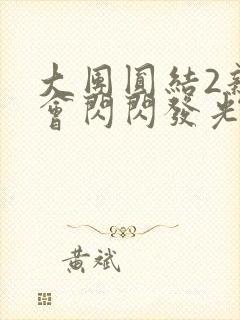 大團圓結2新
會閃閃發光
黃斌